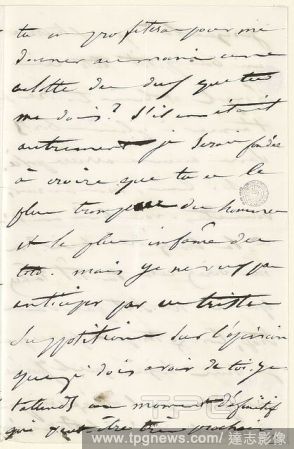 tu en profiteras pour me
donner au moins une
culotte du
me dois? S'il en était
autrement je serais fondée
à croire que tu es le
plus trompeur des hommes
et le plus infâme des
toto. mais je ne veux pas
anticiper par ces tristes
suppositions sur l'opinion
que je dois avoir de toi. je
t'attends au moment définitif
qui peut-être très prochain
TPG
www.tpgnews.com / 達志影像